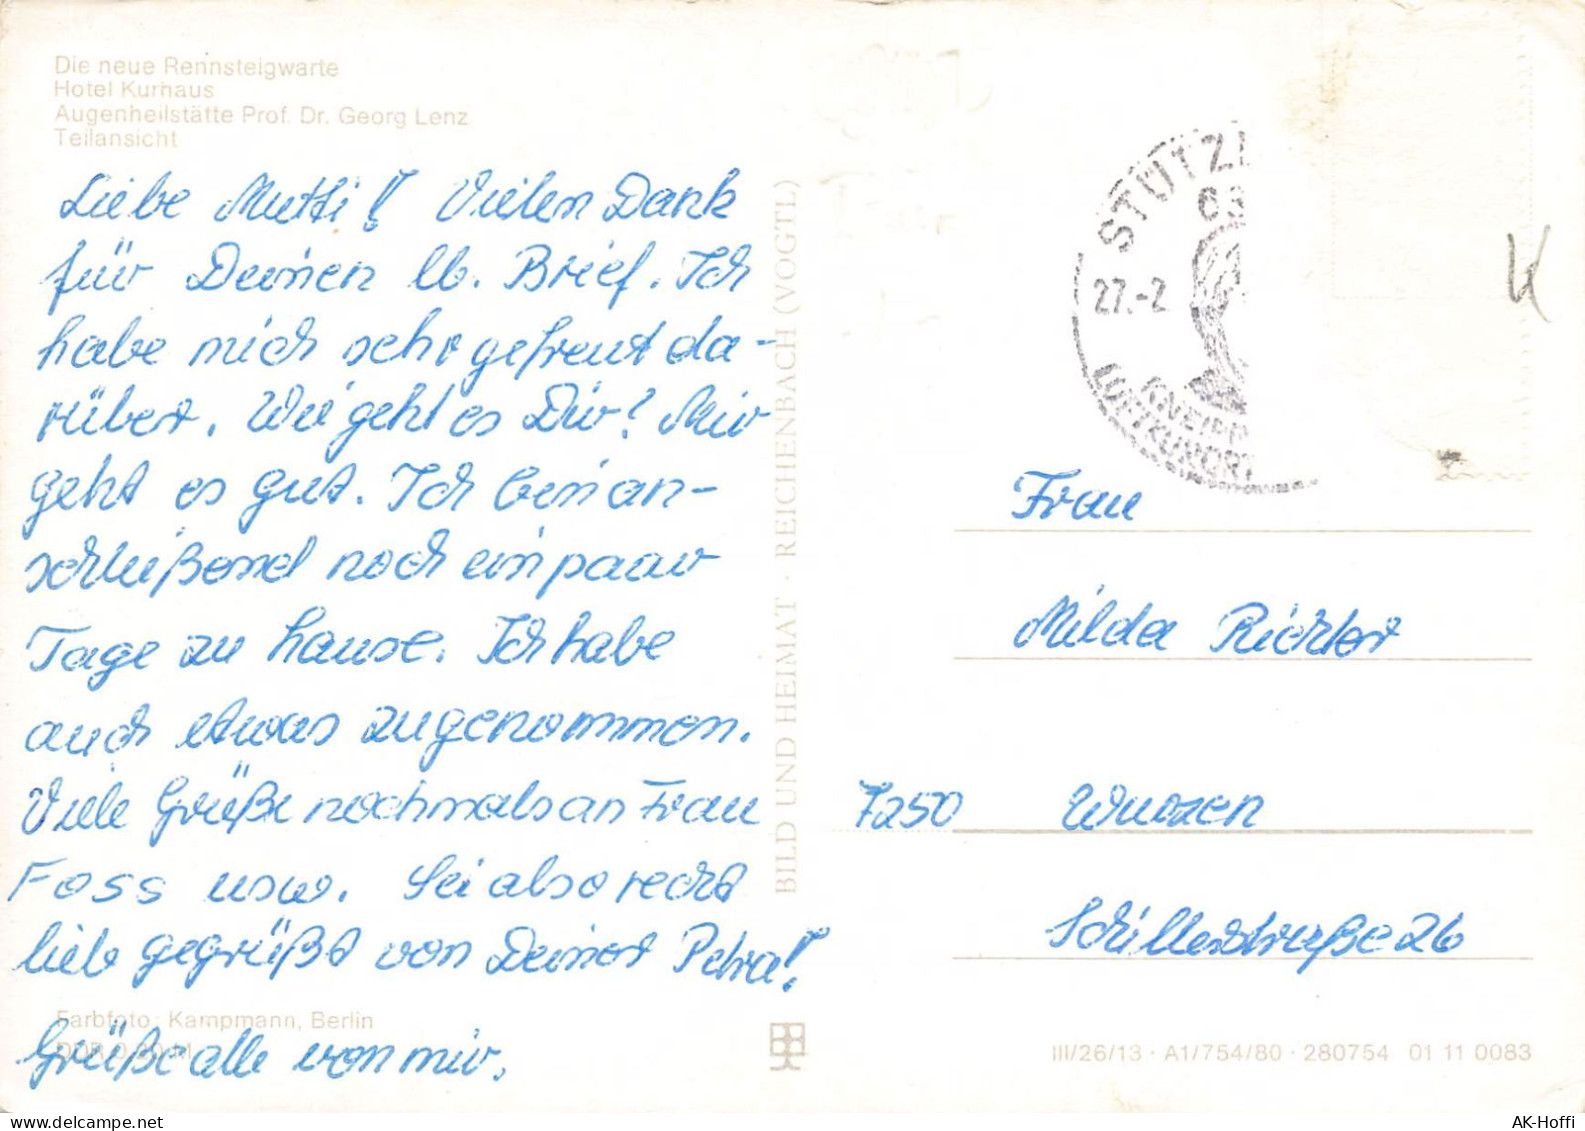 Die neue Rennsteigwarte
Hotel Kurhaus
Augenheilstätte Prof. Dr. Georg Lenz
Teilansicht
Liebe Mutti! Vielen Dank
für Deinen lb. Brief. Ich
habe mich sehr gefreut da-
rüber. Wie geht es Dir? Mir
geht es gut. Ich bin an-
schließend noch ein paar
Tage zu Hause. Ich habe
auch etwas zugenommen.
Viele Grüße nochmals an Frau
Foss usw. Sei also recht
lieb gegrüßt von Deiner Petra!
Grüße alle von mir.
Farbfoto: Kampmann, Berlin
BILD UND HEIMAT · REICHENBACH (VOGTL)
STÜTZ
27.-2
KNEIPP
LUFTKURORT
Frau
Milda Richter
7250 Wurzen
Schillerstraße 26
III/26/13 · A1/754/80 · 280754 01 11 0083
AK-Hoffi